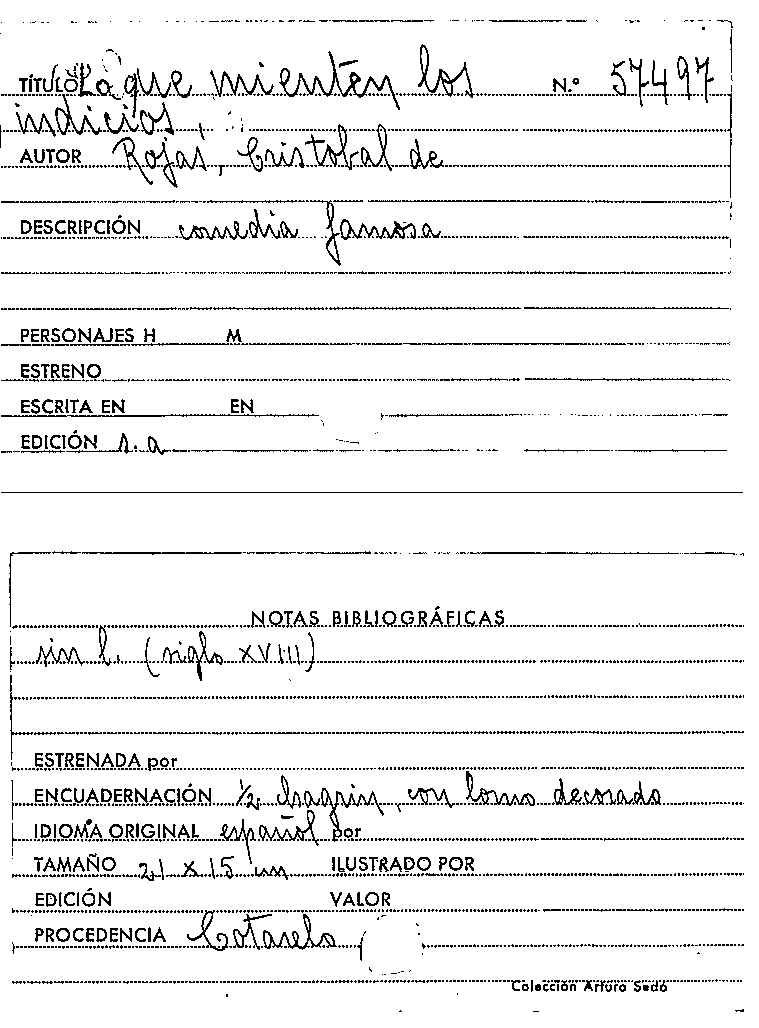 TÍTULO Lo que mienten los N.º 57497
indicios.
AUTOR Rojas, Cristobal de
DESCRIPCIÓN comedia famosa
PERSONAJES H M
ESTRENO
ESCRITA EN EN
EDICIÓN s.a
NOTAS BIBLIOGRÁFICAS
sin l. (siglo XVIII)
ESTRENADA por
ENCUADERNACIÓN ½ chagrin, con lomo decorado
IDIOMA ORIGINAL español por
TAMAÑO 21 x 15 cm ILUSTRADO POR
EDICIÓN VALOR
PROCEDENCIA Cotarelo
Colección Arturo Sedó